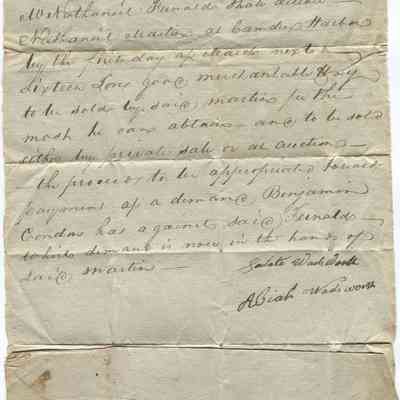 Nathaniel
Nathaniel Martin at Camden Harbor
by the first day of March next
Sixteen Tons good merchantable Hay
to be sold by said Martin for the
most he can obtain and to be sold
either by private sale or at auction —
— the proceeds to be appropriated towards
payment of a demand Benjamin
has against said
which demand is now in the hands of
said Martin —
Wadsworth
Abiah Wadsworth